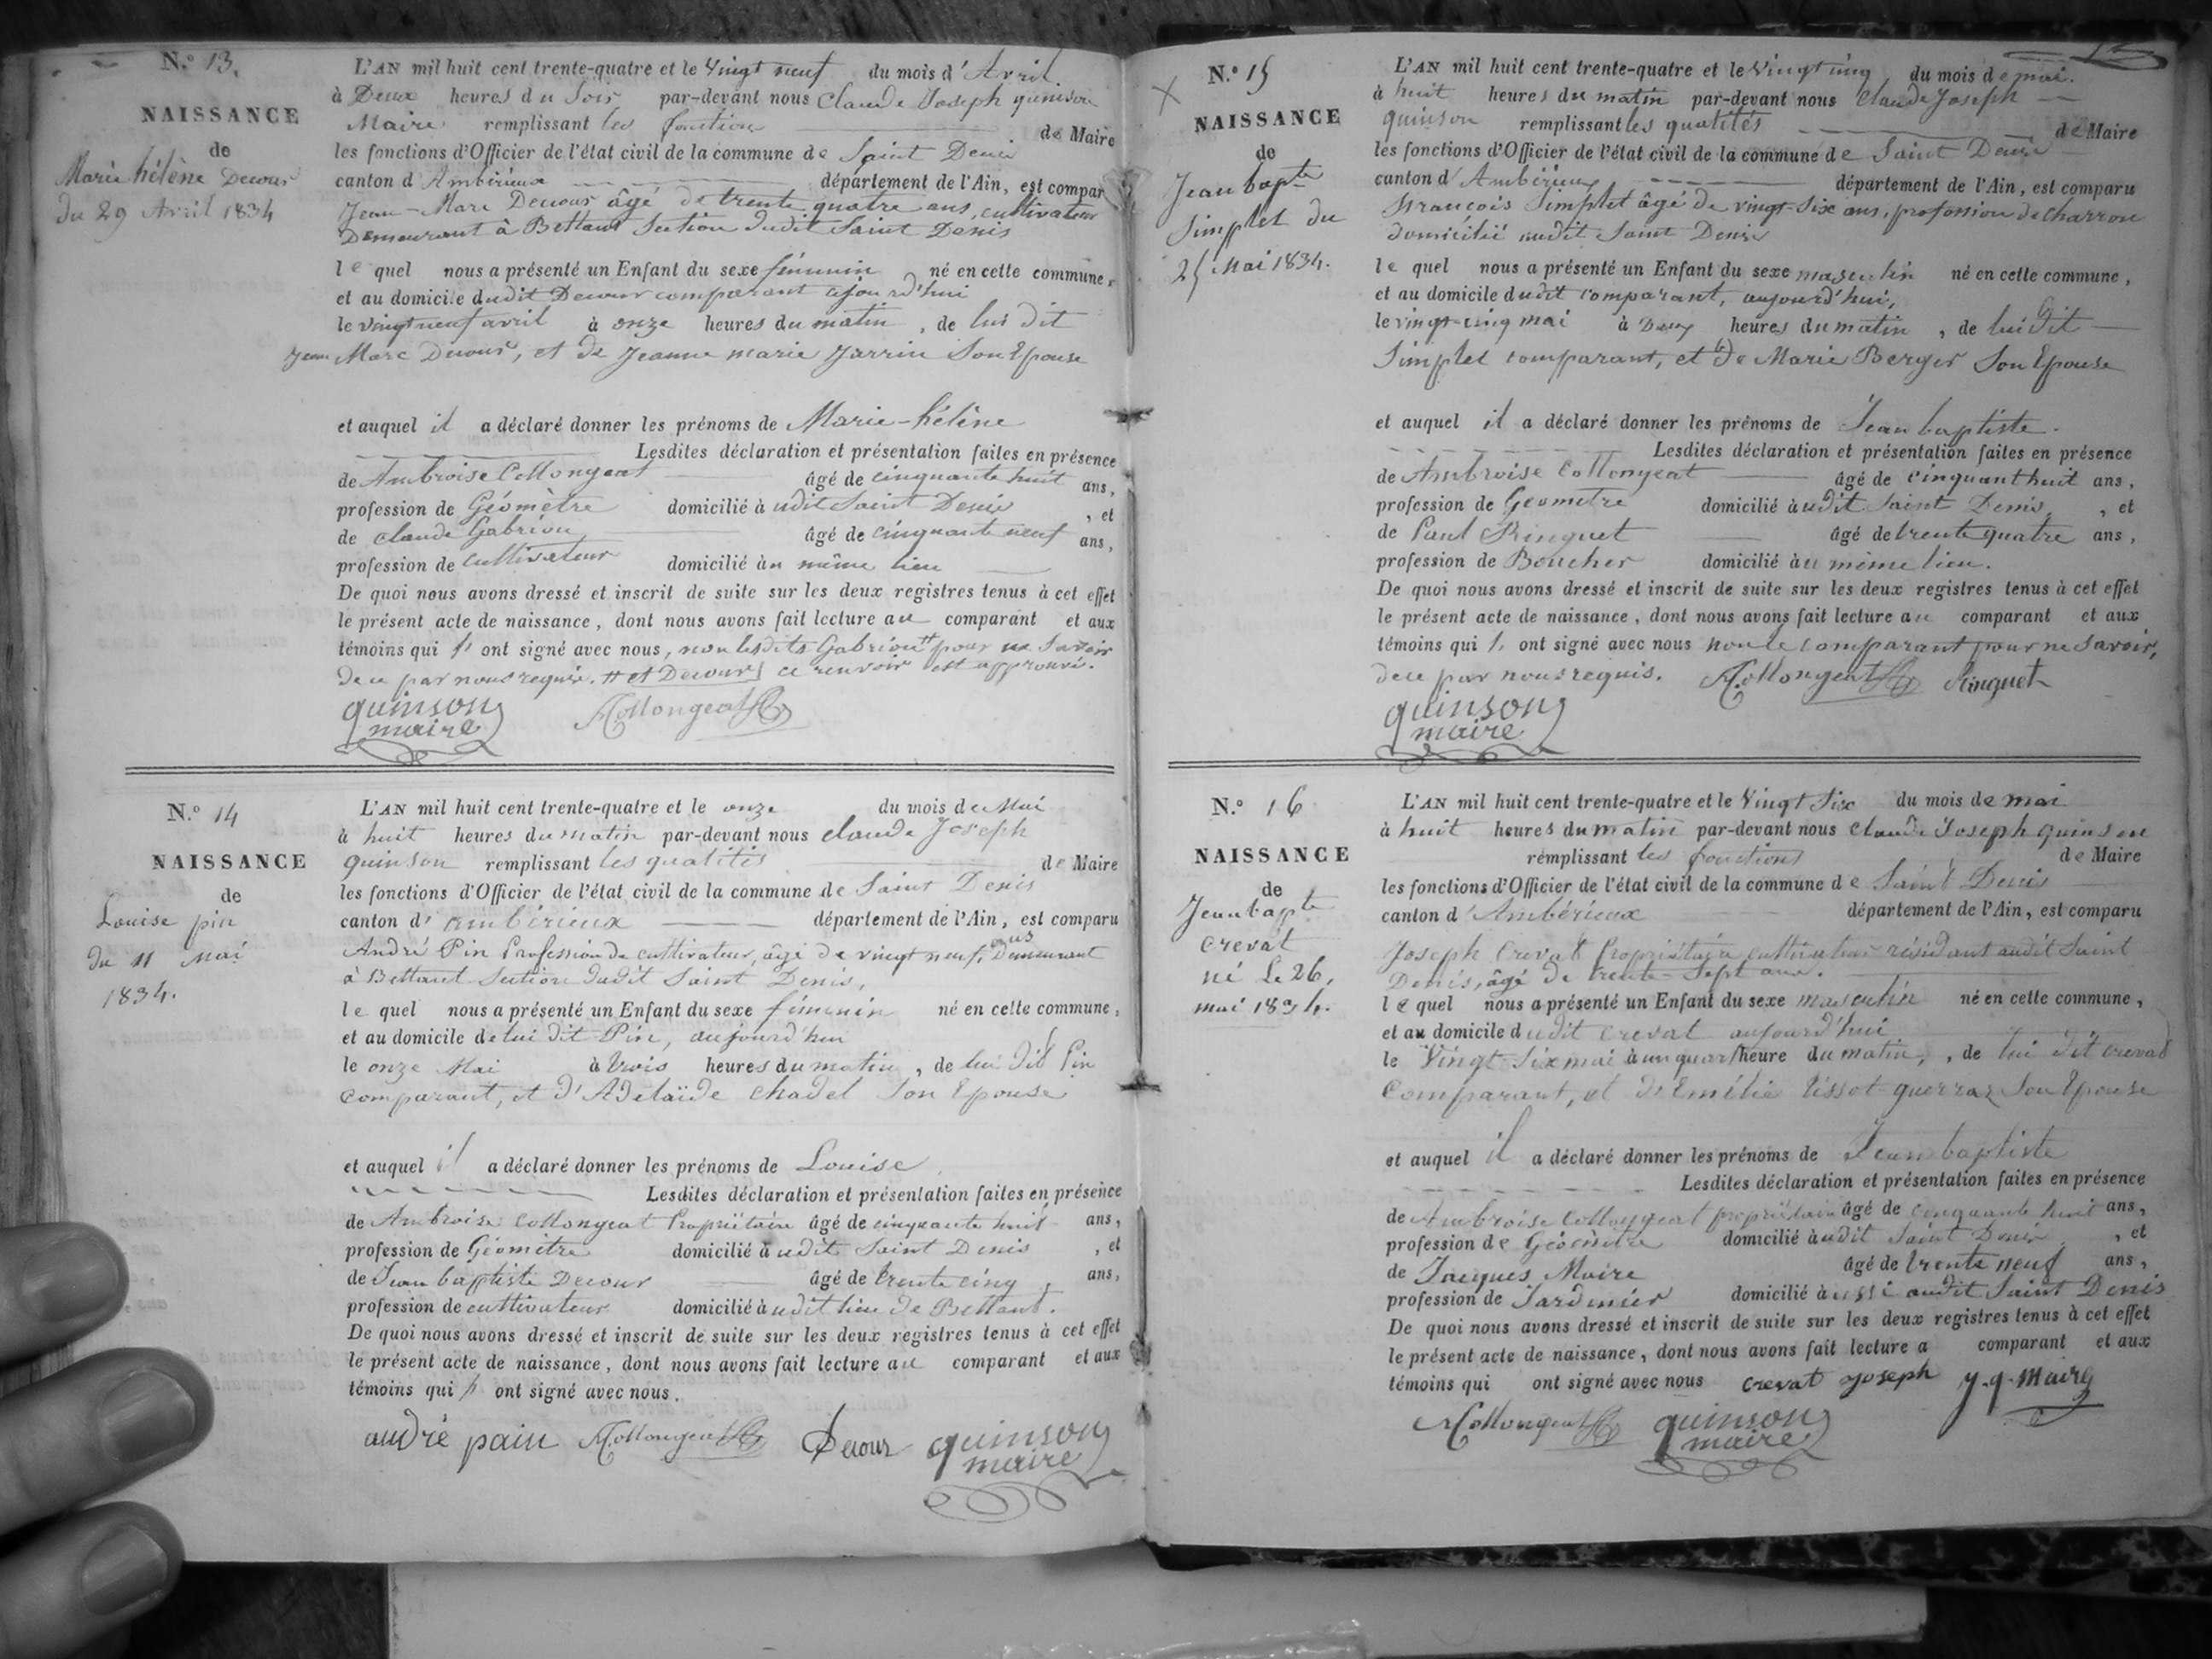 N.º 13.
NAISSANCE
de
Marie hélène Decour
du 29 Avril 1834
L'AN mil huit cent trente-quatre et le Vingt neuf du mois d'Avril
à Deux heures du Soir par-devant nous Claude Joseph quinson
Maire remplissant les fonction de Maire
les fonctions d'Officier de l'état civil de la commune de Saint Denis
canton d'Ambérieux département de l'Ain, est compar
Jean-Marc Decour âgé de trente quatre ans, cultivateur
Demeurant à Bettant Section dudit Saint Denis
le quel nous a présenté un Enfant du sexe féminin né en cette commune,
et au domicile dudit Decour comparant aujourd'hui
le vingt neuf avril à onze heures du matin, de lui dit
Jean Marc Decour, et de Jeanne marie Jarrin Son Epouse
et auquel il a déclaré donner les prénoms de Marie-hélène
Lesdites déclaration et présentation faites en présence
de Ambroise Collongeat âgé de cinquante huit ans,
profession de Géomètre domicilié à udit Saint Denis, et
de Claude Gabrion âgé de cinquante neuf ans,
profession de Cultivateur domicilié au même lieu
De quoi nous avons dressé et inscrit de suite sur les deux registres tenus à cet effet
le présent acte de naissance, dont nous avons fait lecture au comparant et aux
témoins qui ont signé avec nous, non lesdits Gabrion # pour ne Savoir
de ce par nous requis. # et Decour ce renvoir est approuvé.
quinson Collongeat
maire
N.º 14
NAISSANCE
de
Louise pin
du 11 Mai
1834.
L'AN mil huit cent trente-quatre et le onze du mois de Mai
à huit heures du matin par-devant nous claude Joseph
quinson remplissant les qualités de Maire
les fonctions d'Officier de l'état civil de la commune de Saint Denis
canton d'ambérieux département de l'Ain, est comparu
André Pin Profession de cultivateur, âgé de vingt neuf ans Demeurant
à Bettant Section dudit Saint Denis,
le quel nous a présenté un Enfant du sexe féminin né en cette commune,
et au domicile de lui dit Pin, aujourd'hui
le onze Mai à trois heures du matin, de lui dit Pin
comparant, et d'Adelaïde Chadel Son Epouse
et auquel il a déclaré donner les prénoms de Louise
Lesdites déclaration et présentation faites en présence
de Ambroise Collongeat Propriétaire âgé de cinquante huit ans,
profession de Géomètre domicilié à udit Saint Denis, et
de Jean baptiste Decour âgé de trente cinq, ans,
profession de cultivateur domicilié à udit lieu de Bettant.
De quoi nous avons dressé et inscrit de suite sur les deux registres tenus à cet effet
le présent acte de naissance, dont nous avons fait lecture au comparant et aux
témoins qui ont signé avec nous.
andré pain Collongeat Decour quinson
maire
N.º 15
NAISSANCE
de
Jean bapte
Simplet du
25 Mai 1834.
L'AN mil huit cent trente-quatre et le Vingt cinq du mois de mai.
à huit heures du matin par-devant nous Claude Joseph
quinson remplissant les qualités de Maire
les fonctions d'Officier de l'état civil de la commune de Saint Denis
canton d'Ambérieux département de l'Ain, est comparu
François Simplet âgé de vingt-Six ans, profession de Charron
domicilié audit Saint Denis
le quel nous a présenté un Enfant du sexe masculin né en cette commune,
et au domicile dudit comparant, aujourd'hui,
le vingt-cinq mai à Deux heures du matin, de lui Dit
Simplet comparant, et de Marie Berger Son Epouse
et auquel il a déclaré donner les prénoms de Jean baptiste.
Lesdites déclaration et présentation faites en présence
de Ambroise Collongeat âgé de cinquant huit ans,
profession de Géomètre domicilié à udit Saint Denis, et
de Paul Ringuet âgé de trente quatre ans,
profession de Boucher domicilié au même lieu.
De quoi nous avons dressé et inscrit de suite sur les deux registres tenus à cet effet
le présent acte de naissance, dont nous avons fait lecture au comparant et aux
témoins qui ont signé avec nous non le comparant pour ne Savoir,
de ce par nous requis. Collongeat Ringuet
quinson
maire
N.º 16
NAISSANCE
de
Jean bapte
Crevat
né Le 26,
mai 1834.
L'AN mil huit cent trente-quatre et le Vingt Six du mois de mai
à huit heures du matin par-devant nous Claude Joseph quinson
remplissant les fonctions de Maire
les fonctions d'Officier de l'état civil de la commune de Saint Denis
canton d'Ambérieux département de l'Ain, est comparu
Joseph Crevat Propriétaire cultivateur résidant audit Saint
Denis, âgé de trente-Sept ans.
le quel nous a présenté un Enfant du sexe masculin né en cette commune,
et au domicile dudit Crevat aujourd'hui
le Vingt-Six mai à un quart heure du matin, de lui dit Crevat
Comparant, et d'Emélie tissot-guerraz Son Epouse
et auquel il a déclaré donner les prénoms de Jean baptiste
Lesdites déclaration et présentation faites en présence
de Ambroise Collongeat propriétaire âgé de cinquante huit ans,
profession de Géomètre domicilié à udit Saint Denis, et
de Jacques Maire âgé de trente neuf ans,
profession de Jardinier domicilié à ussi audit Saint Denis
De quoi nous avons dressé et inscrit de suite sur les deux registres tenus à cet effet
le présent acte de naissance, dont nous avons fait lecture a comparant et aux
témoins qui ont signé avec nous crevat Joseph Maire
Collongeat quinson
maire